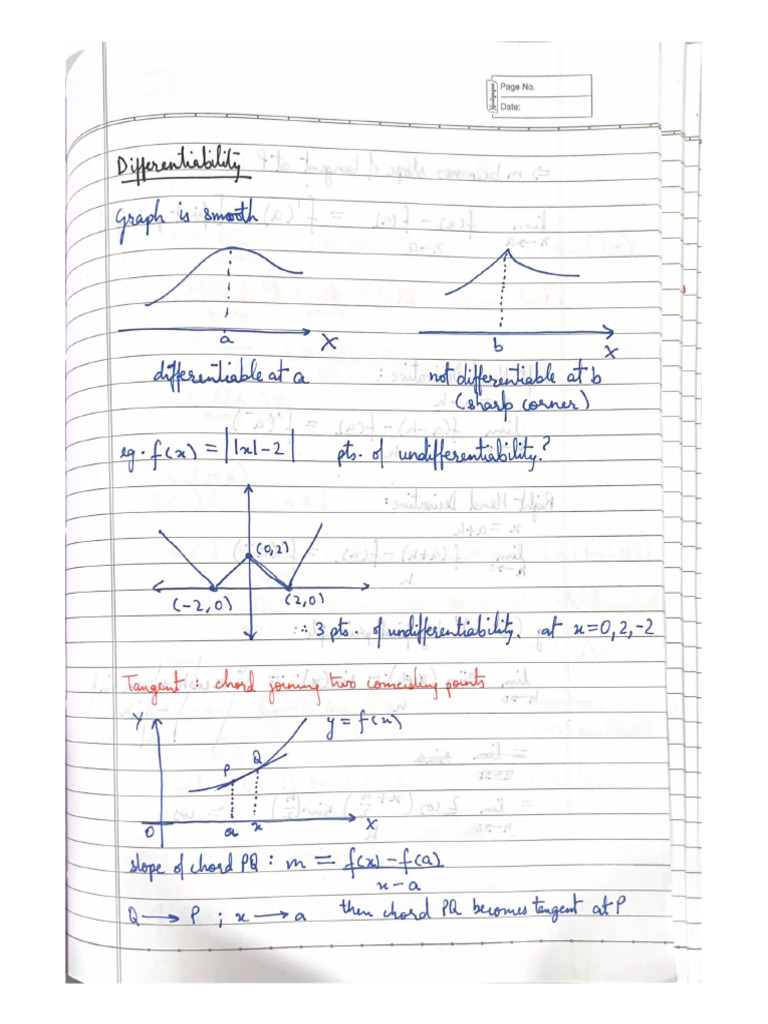 Page No.
Date:
Differentiability
Graph is smooth
a X b X
differentiable at a not differentiable at b
(sharp corner)
eg. f(x) = ||x|-2| pts. of undifferentiability?
(0,2)
(-2,0) (2,0)
∴ 3 pts. of undifferentiability. at x=0,2,-2
Tangent : chord joining two coinciding points
Y y = f(x)
P Q
O a x X
slope of chord PQ : m = f(x)-f(a)
x-a
Q → P ; x → a then chord PQ becomes tangent at P